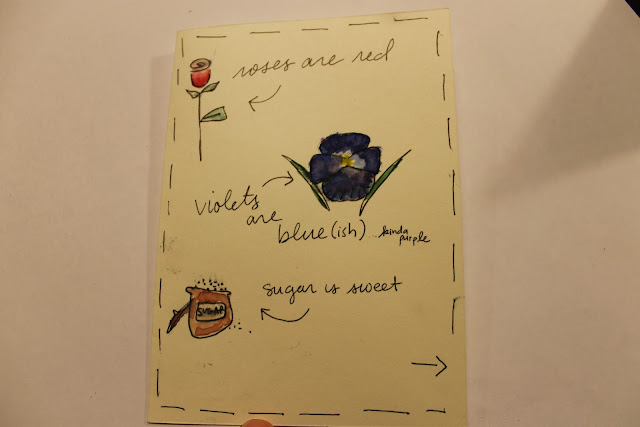 roses are red
violets
are
blue(ish) kinda
purple
sugar is sweet
SUGAR